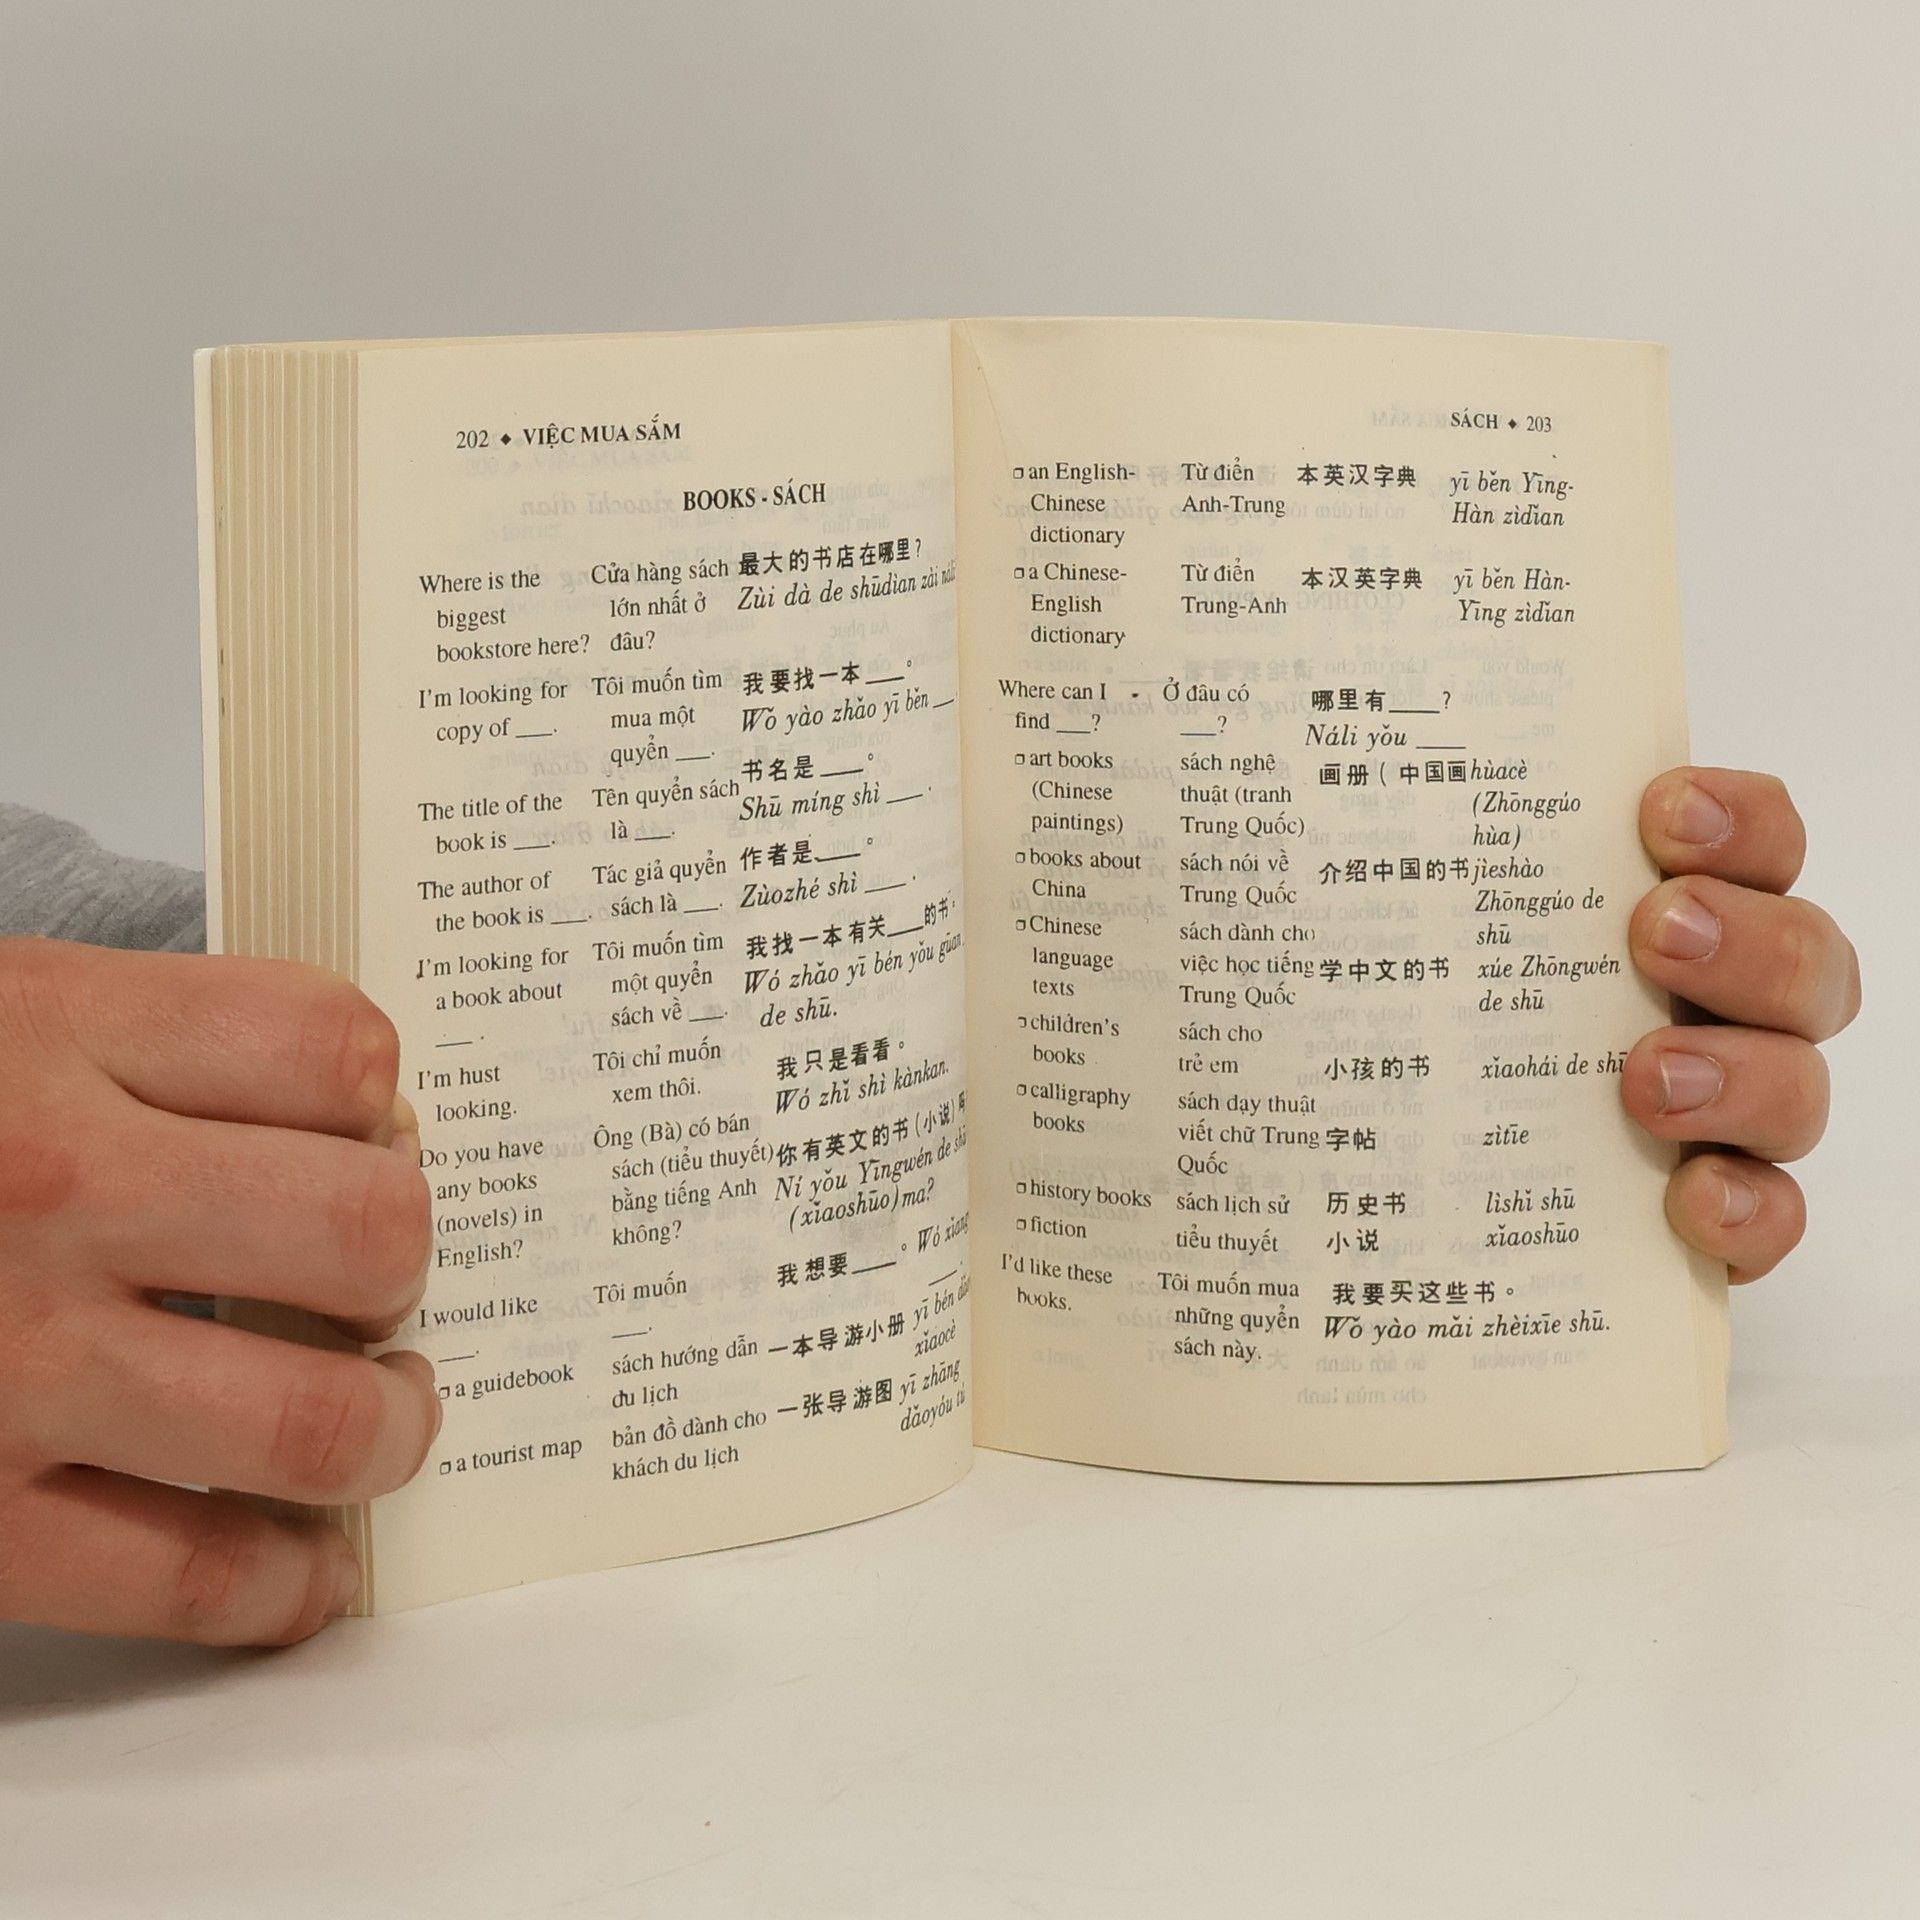 202 ◆ VIỆC MUA SẮM
BOOKS - SÁCH
Where is the
biggest
bookstore here?
Cửa hàng sách
lớn nhất ở
đâu?
最大的书店在哪里？
Zùi dà de shūdìan zài náli
I'm looking for
copy of ___.
Tôi muốn tìm
mua một
quyển ___.
我要找一本___。
Wǒ yào zhǎo yī běn ___
The title of the
book is ___.
Tên quyển sách
là ___.
书名是___。
Shū míng shì ___.
The author of
the book is ___.
Tác giả quyển
sách là ___.
作者是___。
Zùozhé shì ___.
I'm looking for
a book about
___.
Tôi muốn tìm
một quyển
sách về ___.
我找一本有关___的书。
Wó zhǎo yī bén yǒu gūan
de shū.
I'm hust
looking.
Tôi chỉ muốn
xem thôi.
我只是看看。
Wó zhǐ shì kànkan.
Do you have
any books
(novels) in
English?
Ông (Bà) có bán
sách (tiểu thuyết)
bằng tiếng Anh
không?
你有英文的书(小说)吗
Ní yǒu Yīngwén de shū
(xǐaoshūo) ma?
I would like
___.
Tôi muốn
___.
我想要___。 Wó xǐang
___.
❒ a guidebook
sách hướng dẫn
du lịch
一本导游小册 yī bén dǎo
xǐaocè
❒ a tourist map
bản đồ dành cho
khách du lịch
一张导游图 yī zhāng
dǎoyóu tú
SÁCH ◆ 203
❒ an English-
Chinese
dictionary
Từ điển
Anh-Trung
本英汉字典
yī běn Yīng-
Hàn zìdǐan
❒ a Chinese-
English
dictionary
Từ điển
Trung-Anh
本汉英字典
yī běn Hàn-
Yīng zìdǐan
Where can I
find ___?
Ở đâu có
___?
哪里有____?
Náli yǒu ____
❒ art books
(Chinese
paintings)
sách nghệ
thuật (tranh
Trung Quốc)
画册 ( 中国画
hùacè
(Zhōnggúo
hùa)
❒ books about
China
sách nói về
Trung Quốc
介绍中国的书
jìeshào
Zhōnggúo de
shū
❒ Chinese
language
texts
sách dành cho
việc học tiếng
Trung Quốc
学中文的书
xúe Zhōngwén
de shū
❒ children's
books
sách cho
trẻ em
小孩的书
xǐaohái de shū
❒ calligraphy
books
sách dạy thuật
viết chữ Trung
Quốc
字帖
zìtīe
❒ history books
sách lịch sử
历史书
lìshǐ shū
❒ fiction
tiểu thuyết
小说
xǐaoshūo
I'd like these
books.
Tôi muốn mua
những quyển
sách này.
我要买这些书。
Wǒ yào mǎi zhèixīe shū.